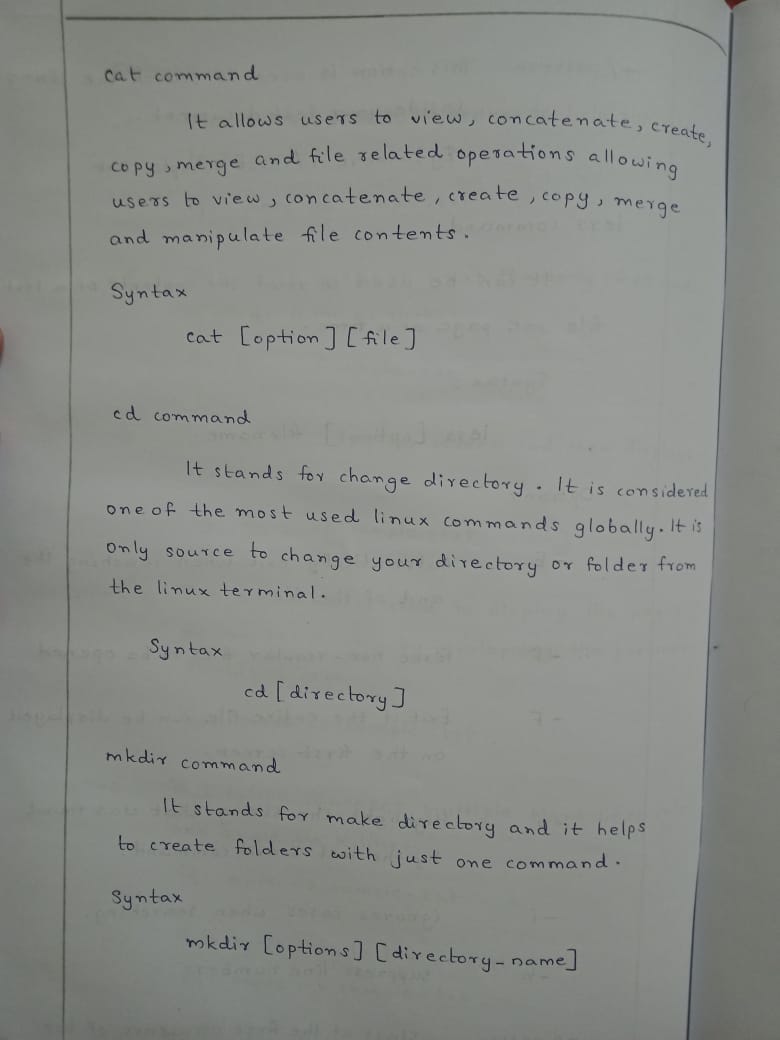 cat command
It allows users to view, concatenate, create,
copy, merge and file related operations allowing
users to view, concatenate, create, copy, merge
and manipulate file contents.
Syntax
cat [option] [file]
cd command
It stands for change directory. It is considered
one of the most used linux commands globally. It is
only source to change your directory or folder from
the linux terminal.
Syntax
cd [directory]
mkdir command
It stands for make directory and it helps
to create folders with just one command.
Syntax
mkdir [options] [directory-name]